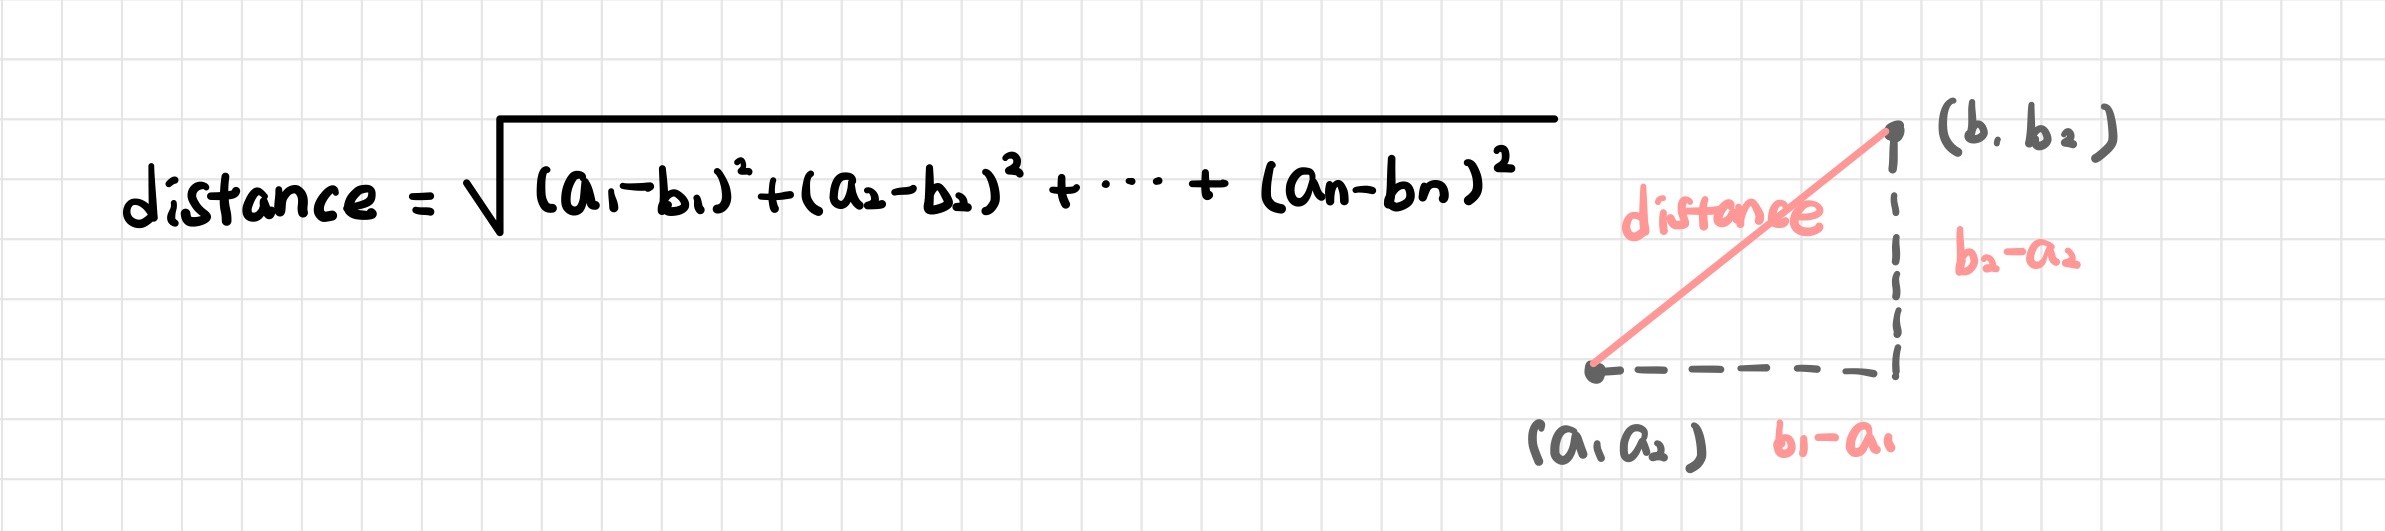 distance = √(a₁-b₁)²+(a₂-b₂)² + ··· + (an-bn)²
(b₁ b₂)
distance
b₂-a₂
(a₁ a₂)
b₁-a₁